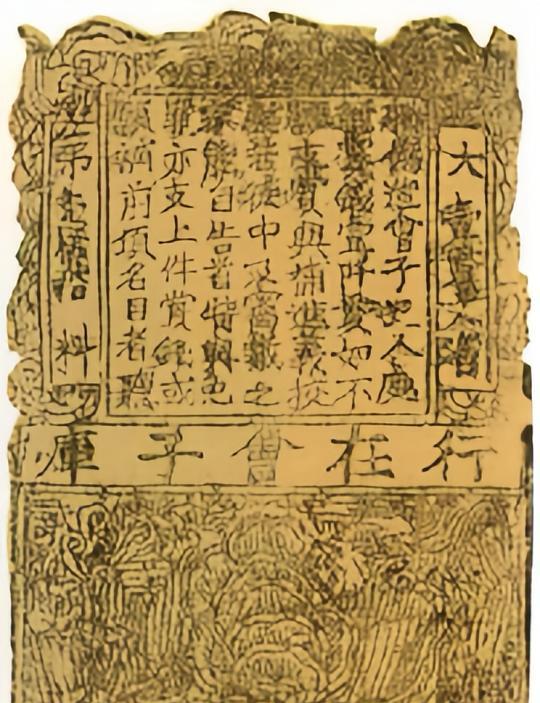 大壹貫文省
敕偽造會子犯人處
斬賞錢壹阡貫如不
願支賞與補進義校
尉若徒中及窩藏之
家能自告首特與免
罪亦支上件賞錢或
願補前項名目者聽
料
行在會子庫